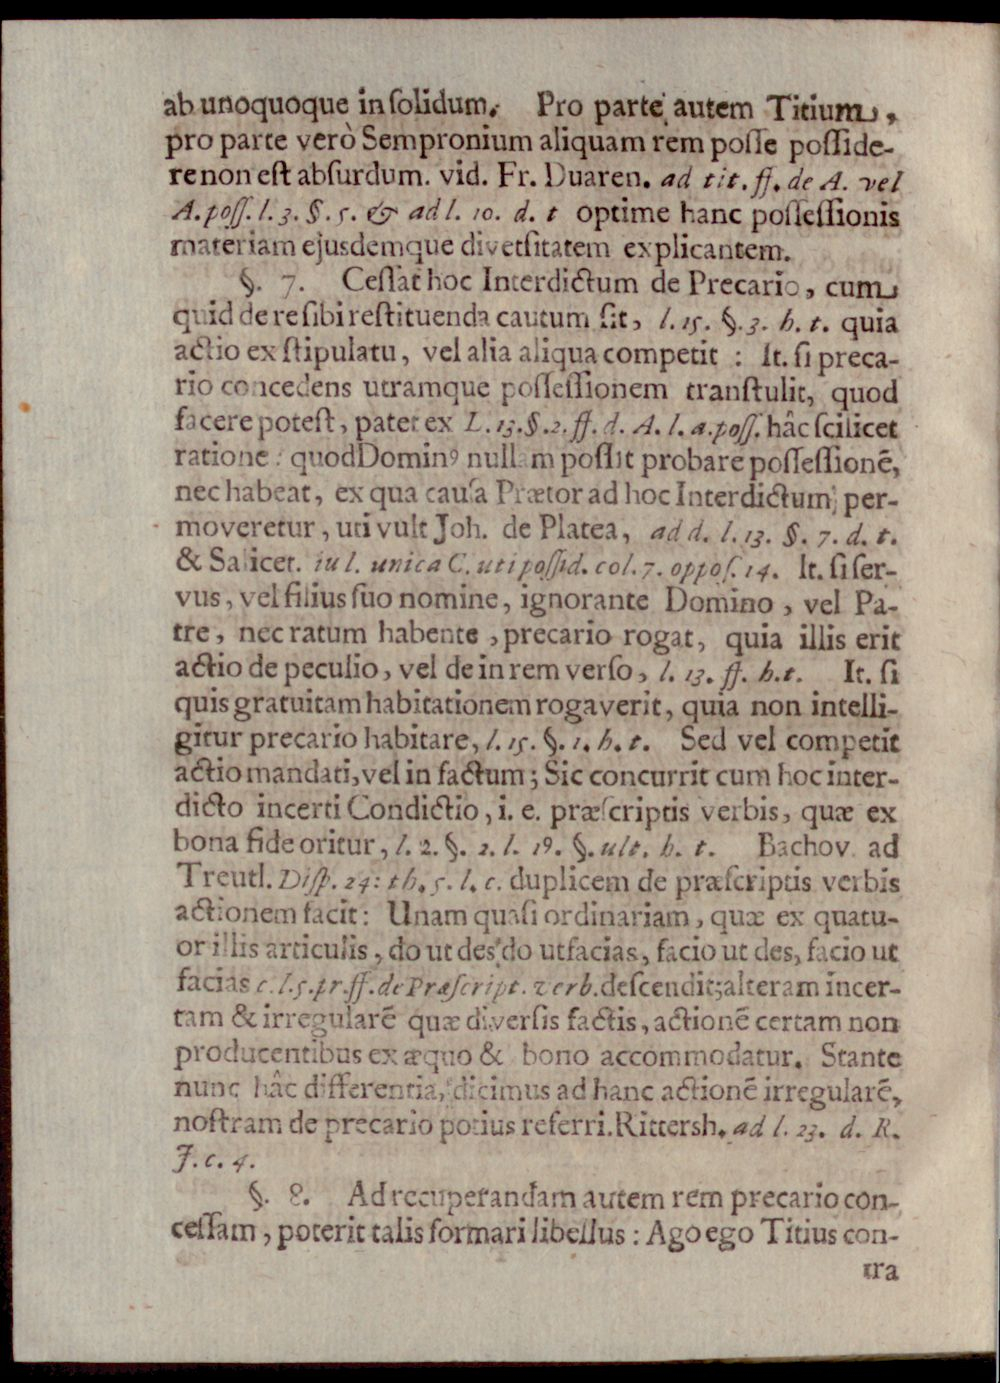 ab unoquoque in ſolidum. Pro parte autem Titium,
pro parte verò Sempronium aliquam rem poſſe poſſide-
re non eſt abſurdum. vid. Fr. Duaren. ad tit. ff. de A. vel
A. poſſ. l. 3. §. 5. & ad l. 10. d. t optime hanc poſſeſſionis
materiam ejusdemque diverſitatem explicantem.
§. 7. Ceſſat hoc Interdictum de Precario, cum
quid de re ſibi reſtituenda cautum ſit, l. 15. §. 3. h. t. quia
actio ex ſtipulatu, vel alia aliqua competit : It. ſi preca-
rio concedens utramque poſſeſſionem tranſtulit, quod
facere poteſt, patet ex L. 13. §. 2. ff. d. A. l. a. poſſ. hâc ſcilicet
ratione: quod Dominꝰ nullam poſſit probare poſſeſſionē,
nec habeat, ex qua cauſa Prætor ad hoc Interdictum per-
moveretur, uti vult Joh. de Platea, ad d. l. 13. §. 7. d. t.
& Salicet. in l. unica C. uti poſſid. col. 7. oppoſ. 14. It. ſi ſer-
vus, vel filius ſuo nomine, ignorante Domino, vel Pa-
tre, nec ratum habente, precario rogat, quia illis erit
actio de peculio, vel de in rem verſo, l. 13. ff. h. t. It. ſi
quis gratuitam habitationem rogaverit, quia non intelli-
gitur precario habitare, l. 15. §. 1. h. t. Sed vel competit
actio mandati, vel in factum; Sic concurrit cum hoc inter-
dicto incerti Condictio, i. e. præſcriptis verbis, quæ ex
bona fide oritur, l. 2. §. 2. l. 19. §. ult. h. t. Bachov. ad
Treutl. Diſp. 24: th. 5. l. c. duplicem de præſcriptis verbis
actionem facit: Unam quaſi ordinariam, quæ ex quatu-
or illis articulis, do ut des, do ut facias, facio ut des, facio ut
facias c. l. 5. pr. ff. de Præſcript. verb. deſcendit; alteram incer-
tam & irregularē quæ diverſis factis, actionē certam non
producentibus ex æquo & bono accommodatur. Stante
nunc hâc differentia, dicimus ad hanc actionē irregularē,
noſtram de precario potius referri. Rittersh. ad l. 23. d. R.
J. c. 4.
§. 8. Ad recuperandam autem rem precario con-
ceſſam, poterit talis formari libellus : Ago ego Titius con-
tra